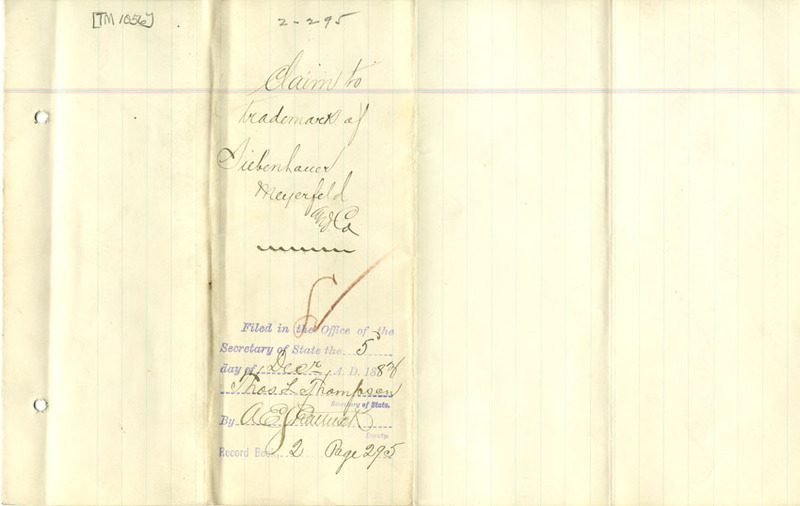 [TM 1056]
2-295
Claim to
trademark of
Siebenhauer
Meyerfeld
and Co
Filed in the Office of the
Secretary of State the 5
day of Decr, A. D. 188
Thos L. Thompson
Secretary of State.
By A E
Deputy.
Record Book 2 Page 295